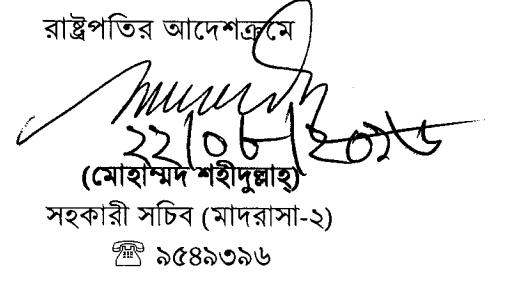 রাষ্ট্রপতির আদেশক্রমে
২২/০৮/২০১৬
(মোহাম্মদ শহীদুল্লাহ্)
সহকারী সচিব (মাদরাসা-২)
☎ ৯৫৪৯৩৯৬